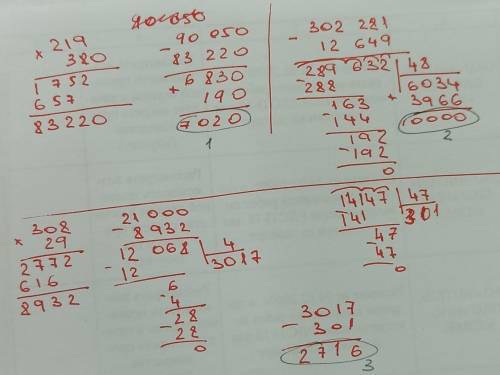 × 219
380
1752
657
83220
90 050
- 90 050
83 220
+ 6830
190
7020
1
- 302 281
12 649
289 632 | 48
- 288 6034
163 + 3966
- 144 10000
192 2
- 192
0
× 308
29
2772
616
8932
- 21 000
8932
12 068 | 4
- 12 3017
6
- 4
28
- 28
0
14147 | 47
- 141 301
47
- 47
0
- 3017
301
2716
3